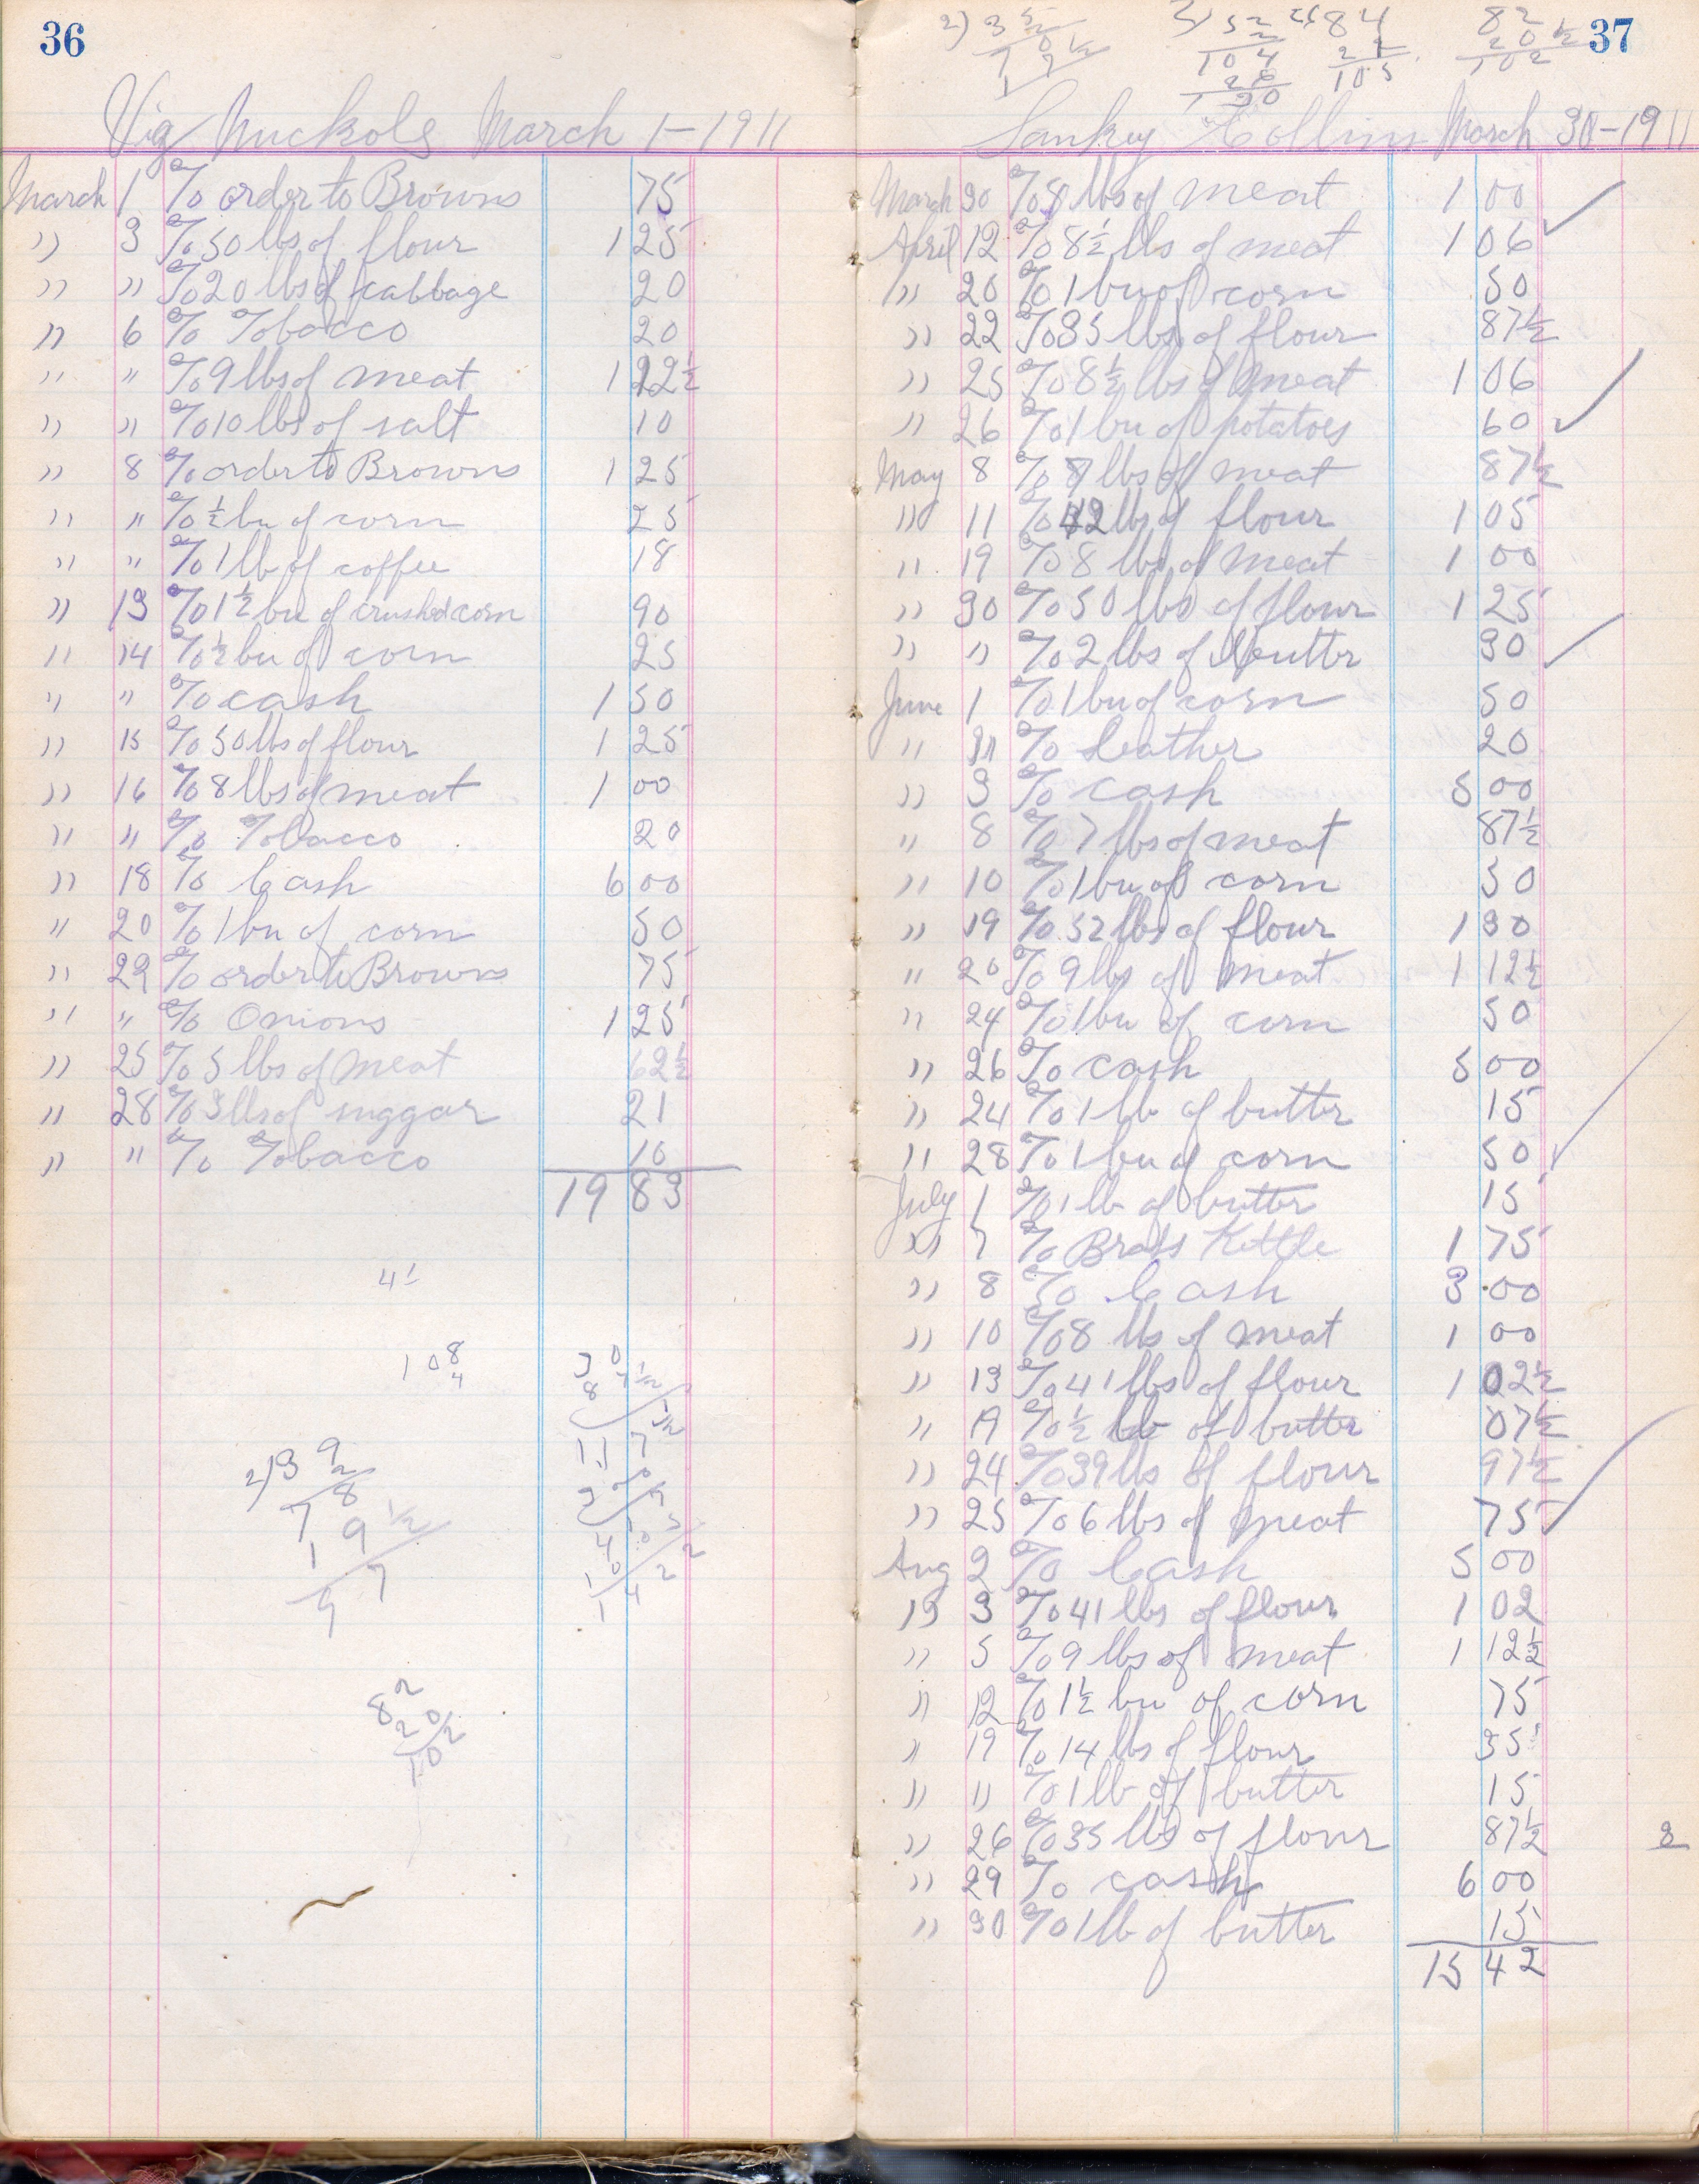 36
Vig Nuckols March 1-1911
March 1 % order to Browns 75
" 3 % 50 lbs of flour 1 25
" " % 20 lbs of cabbage 20
" 6 % Tobacco 20
" " % 9 lbs of meat 1 12½
" " % 10 lbs of salt 10
" 8 % order to Browns 1 25
" " % ½ bu of corn 25
" " % 1 lb of coffee 18
" 13 % 1½ bu of crushed corn 90
" 14 % ½ bu of corn 25
" " % cash 1 50
" 15 % 50 lbs of flour 1 25
" 16 % 8 lbs of meat 1 00
" " % Tobacco 20
" 18 % Cash 6 00
" 20 % 1 bu of corn 50
" 22 % order to Browns 75
" " % Onions 1 25
" 25 % 5 lbs of meat 62½
" 28 % 3 lbs of suggar 21
" " % Tobacco 10
19 83
41
108
4
2) 39
2
78
19½
97
82
20
102
37
52
2
104
26
130
84
21
105
82
20½
102
Sankey Collins March 30-1911
March 30 % 8 lbs of meat 1 00
April 12 % 8½ lbs of meat 1 06
" 20 % 1 bu of corn 50
" 22 % 35 lbs of flour 87½
" 25 % 8½ lbs of meat 1 06
" 26 % 1 bu of potatoes 60
May 8 % 7 lbs of meat 87½
" 11 % 42 lbs of flour 1 05
" 19 % 8 lbs of meat 1 00
" 30 % 50 lbs of flour 1 25
" " % 2 lbs of butter 30
June 1 % 1 bu of corn 50
" " % leather 20
" 3 % cash 5 00
" 8 % 7 lbs of meat 87½
" 10 % 1 bu of corn 50
" 19 % 52 lbs of flour 1 30
" 20 % 9 lbs of meat 1 12½
" 24 % 1 bu of corn 50
" 26 % cash 5 00
" 24 % 1 lb of butter 15
" 28 % 1 bu of corn 50
July 1 % 1 lb of butter 15
" 7 % Brass Kettle 1 75
" 8 % Cash 3 00
" 10 % 8 lbs of meat 1 00
" 13 % 41 lbs of flour 1 02½
" 19 % ½ lb of butter 07½
" 24 % 39 lbs of flour 97½
" 25 % 6 lbs of meat 75
Aug 2 % Cash 5 00
" 3 % 41 lbs of flour 1 02
" 5 % 9 lbs of meat 1 12½
" 12 % 1½ bu of corn 75
" 19 % 14 lbs of flour 35
" " % 1 lb of butter 15
" 26 % 35 lbs of flour 87½
" 29 % cash 6 00
" 30 % 1 lb of butter 15
15 42